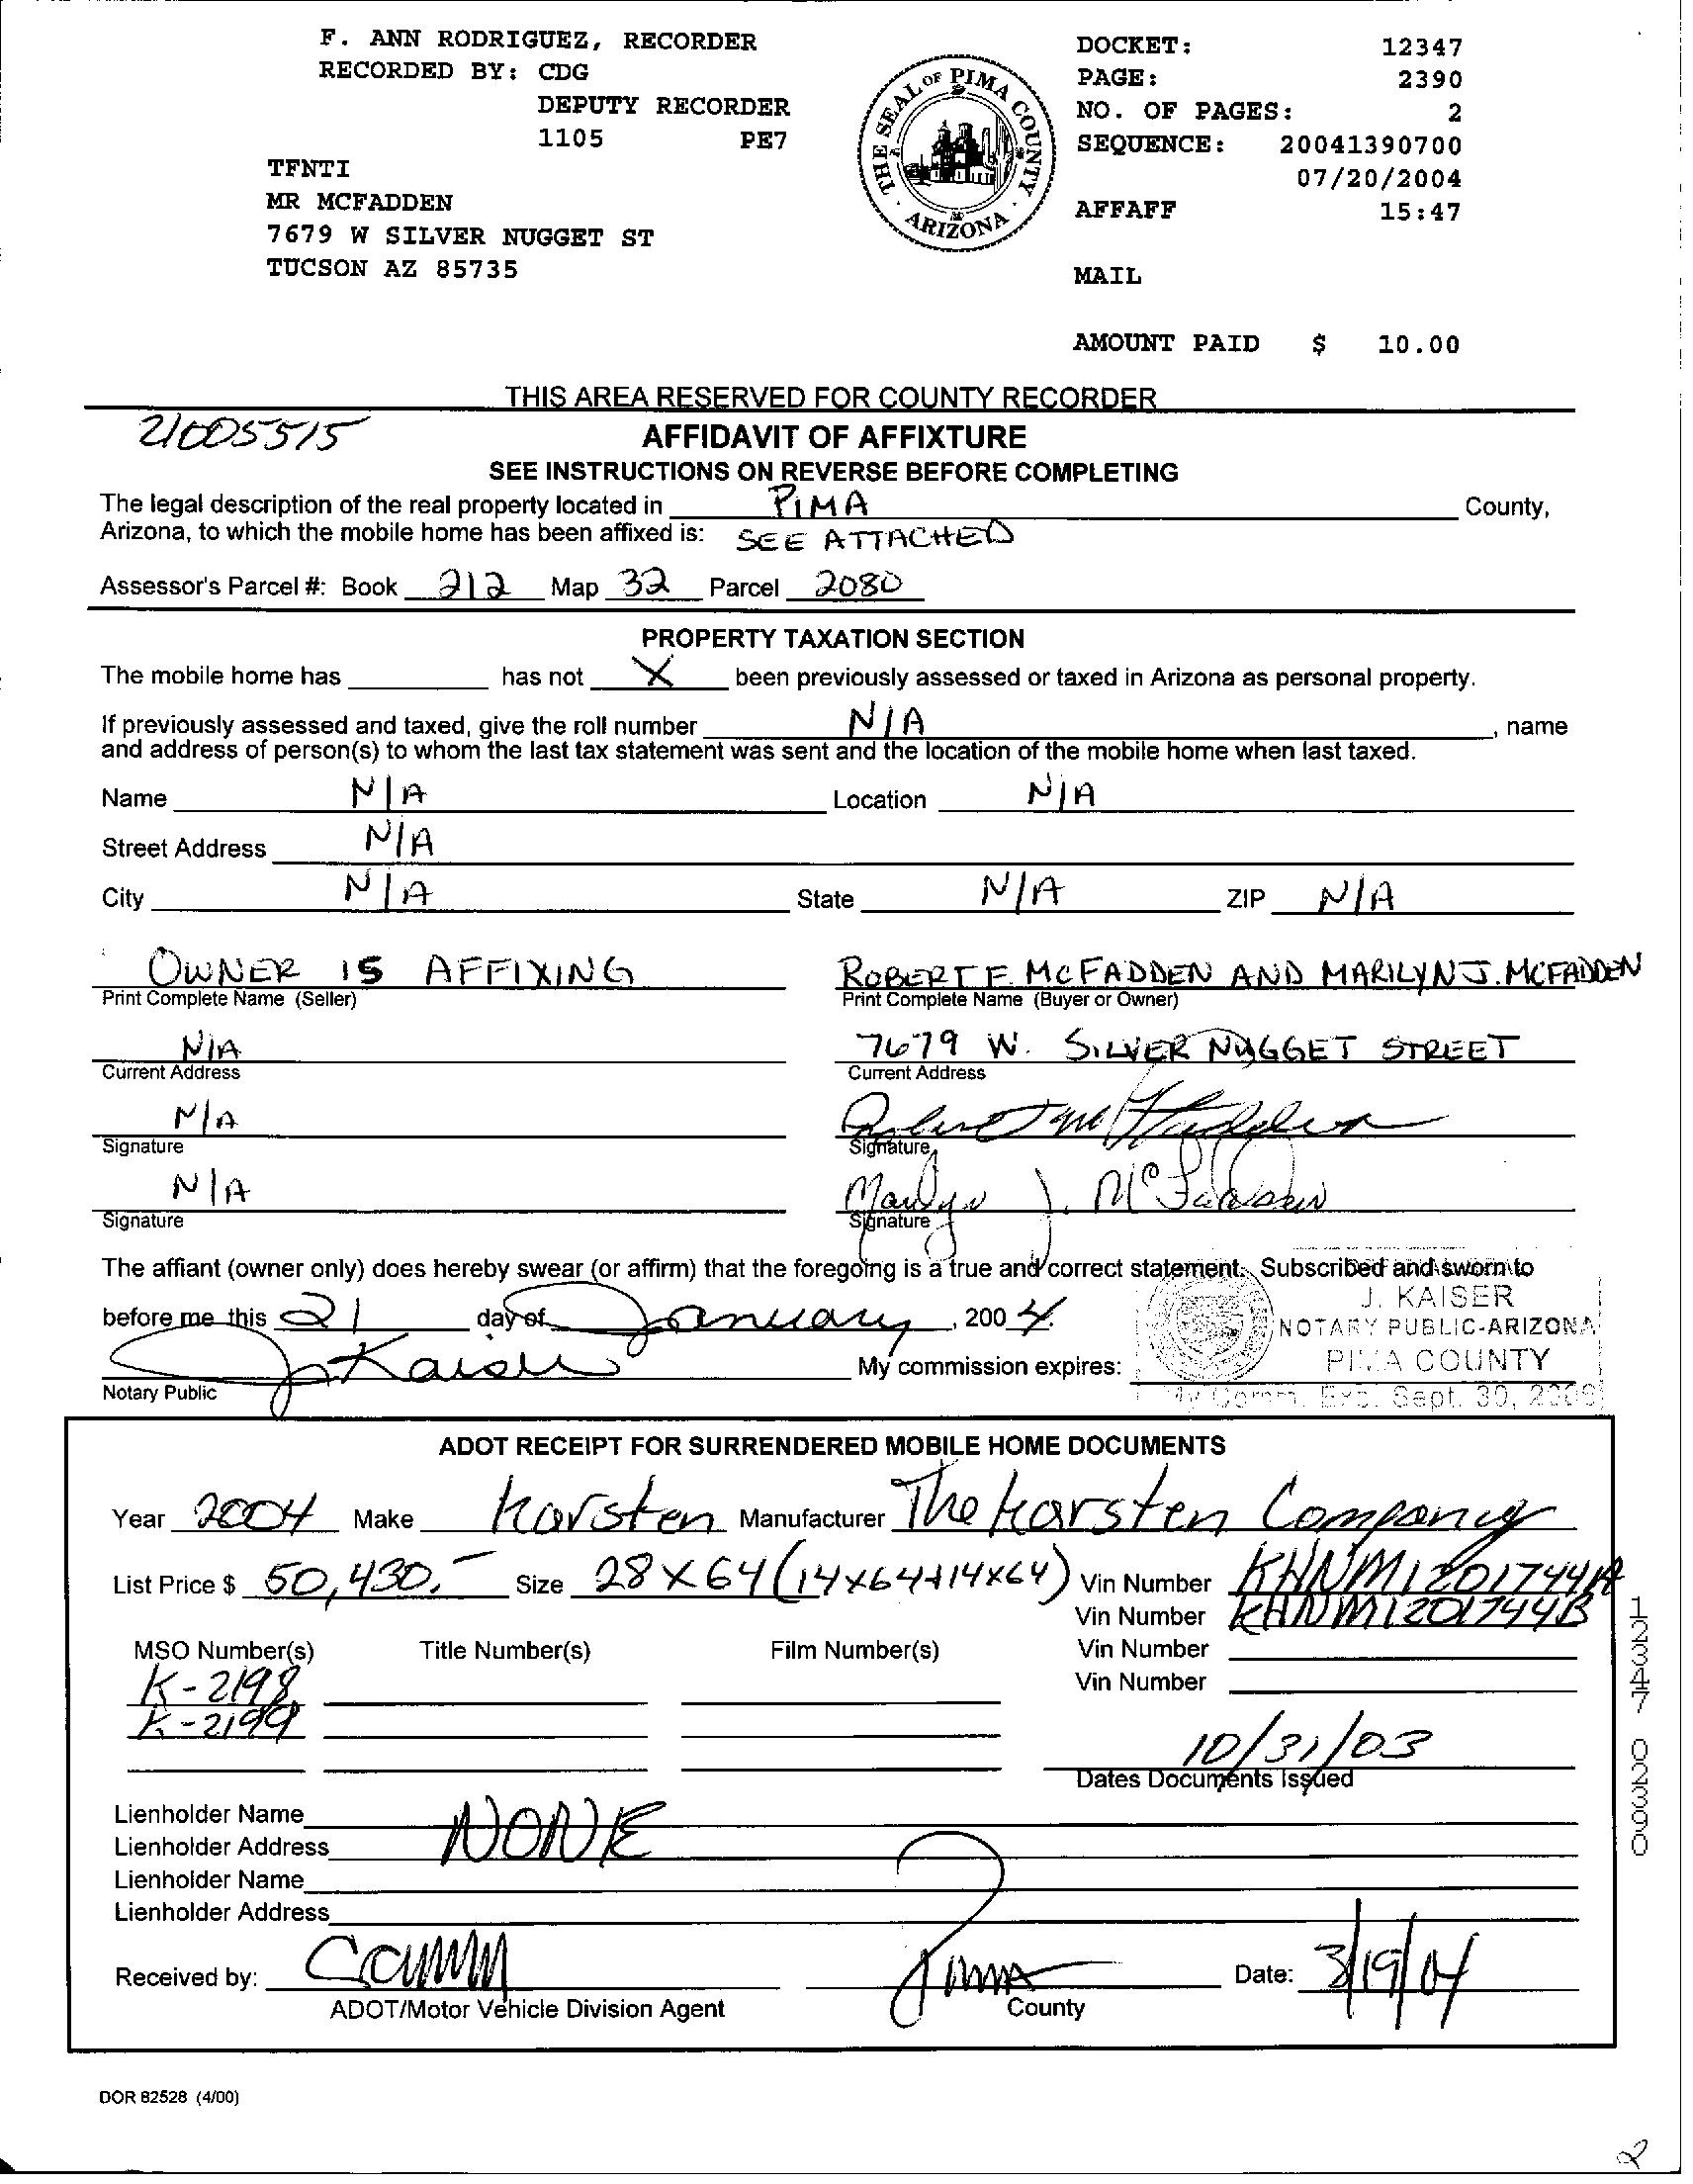 F. ANN RODRIGUEZ, RECORDER
RECORDED BY: CDG
DEPUTY RECORDER
1105 PE7
TFNTI
MR MCFADDEN
7679 W SILVER NUGGET ST
TUCSON AZ 85735
THE SEAL OF PIMA COUNTY
ARIZONA
DOCKET: 12347
PAGE: 2390
NO. OF PAGES: 2
SEQUENCE: 20041390700
07/20/2004
AFFAFF 15:47
MAIL
AMOUNT PAID $ 10.00
THIS AREA RESERVED FOR COUNTY RECORDER
21005515
AFFIDAVIT OF AFFIXTURE
SEE INSTRUCTIONS ON REVERSE BEFORE COMPLETING
The legal description of the real property located in PIMA County,
Arizona, to which the mobile home has been affixed is: SEE ATTACHED
Assessor's Parcel #: Book 212 Map 32 Parcel 2080
PROPERTY TAXATION SECTION
The mobile home has has not X been previously assessed or taxed in Arizona as personal property.
If previously assessed and taxed, give the roll number N/A , name
and address of person(s) to whom the last tax statement was sent and the location of the mobile home when last taxed.
Name N/A Location N/A
Street Address N/A
City N/A State N/A ZIP N/A
OWNER IS AFFIXING ROBERT F. MCFADDEN AND MARILYN J. MCFADDEN
Print Complete Name (Seller) Print Complete Name (Buyer or Owner)
N/A 7679 W. SILVER NUGGET STREET
Current Address Current Address
N/A
Signature Signature
N/A Marilyn J. McFadden
Signature Signature
The affiant (owner only) does hereby swear (or affirm) that the foregoing is a true and correct statement. Subscribed and sworn to
before me this 21 day of January , 2004.
J. KAISER
NOTARY PUBLIC-ARIZONA
PIMA COUNTY
My Comm. Exp. Sept. 30,
J Kaiser My commission expires:
Notary Public
ADOT RECEIPT FOR SURRENDERED MOBILE HOME DOCUMENTS
Year 2004 Make Karsten Manufacturer The Karsten Company
List Price $ 50,430.- Size 28 X 64 (14X64+14X64) Vin Number KHNM1201744A
Vin Number KHNM1201744B
MSO Number(s) Title Number(s) Film Number(s) Vin Number
K-2198 Vin Number
K-2199
10/31/03
Dates Documents Issued
Lienholder Name NONE
Lienholder Address
Lienholder Name
Lienholder Address
Received by: Pima Date: 3/19/04
ADOT/Motor Vehicle Division Agent County
DOR 82528 (4/00)
12347 02390
2